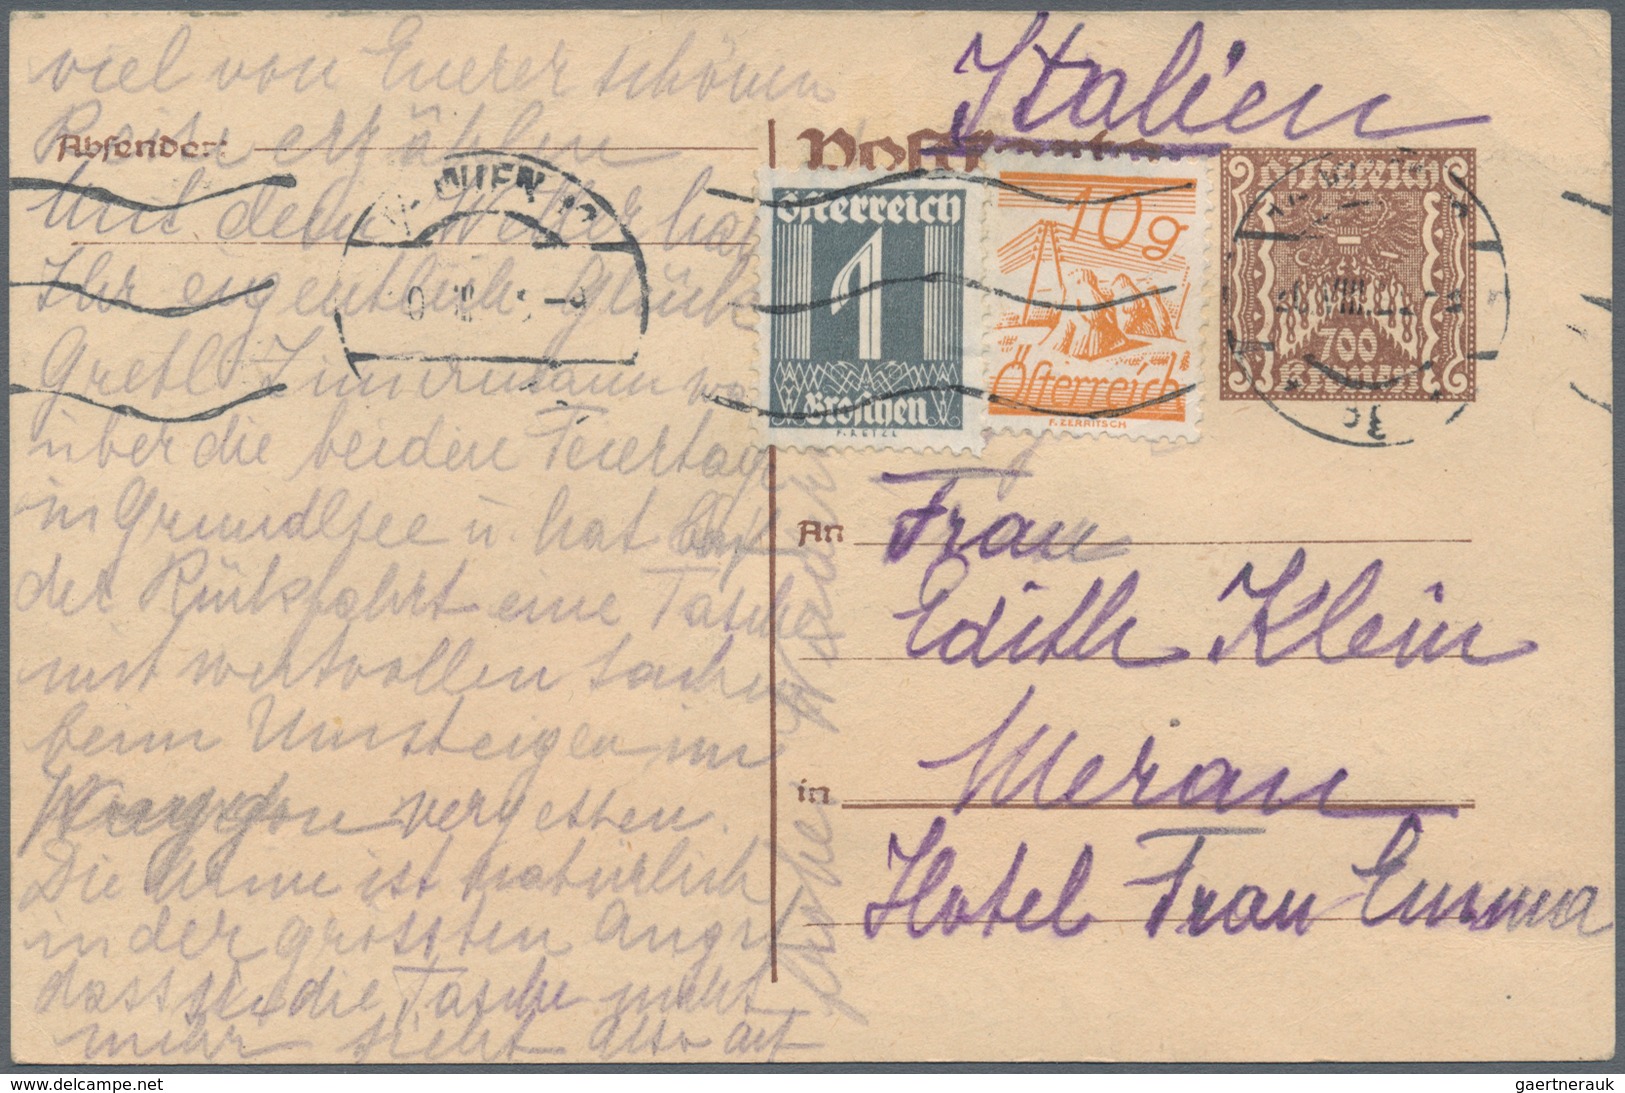 viel von Euerer schönen
Reise erzählen
Mit dem Wetter habt
Ihr eigentlich Glück
Gretl Zimmermann war
über die beiden Feiertage
in Grundlsee u. hat auf
der Rückfahrt eine Tasche
mit wertvollen Sachen
beim Umsteigen im
Waggon vergessen.
Die Arme ist natürlich
in der grössten Angst
dass sie die Tasche nicht
mehr sieht also auf
Wiedersehen
Absender:
WIEN
Italien
Postkarte
Österreich
1
Groschen
10g
Österreich
F. ZERRITSCH
Österreich
700
Kronen
An Frau
Edith Klein
in Meran
Hotel Frau Emma
gaertnerauk